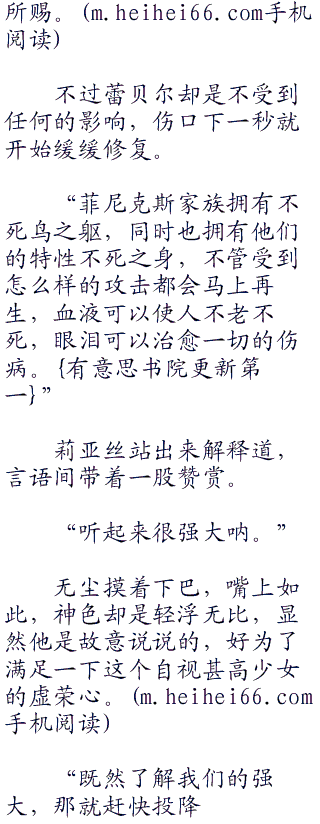 所赐。(m.heihei66.com手机
阅读)
不过蕾贝尔却是不受到
任何的影响，伤口下一秒就
开始缓缓修复。
“菲尼克斯家族拥有不
死鸟之躯，同时也拥有他们
的特性不死之身，不管受到
怎么样的攻击都会马上再
生，血液可以使人不老不
死，眼泪可以治愈一切的伤
病。{有意思书院更新第
一}”
莉亚丝站出来解释道，
言语间带着一股赞赏。
“听起来很强大呐。”
无尘摸着下巴，嘴上如
此，神色却是轻浮无比，显
然他是故意说说的，好为了
满足一下这个自视甚高少女
的虚荣心。(m.heihei66.com
手机阅读)
“既然了解我们的强
大，那就赶快投降